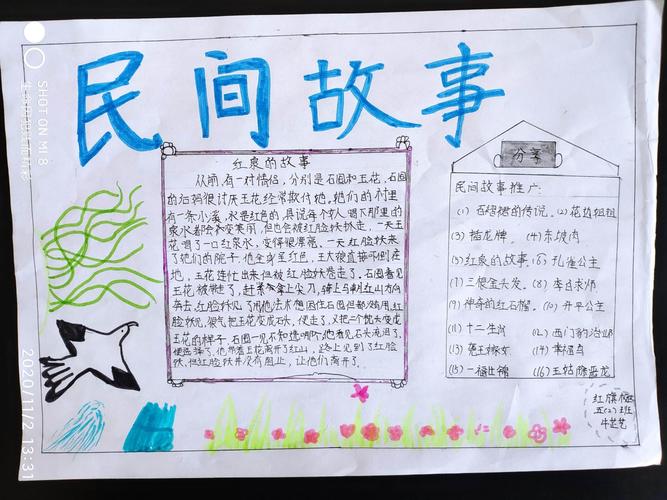 民间故事
红泉的故事
从前,有一对情侣,分别是石囤和玉花,石囤
的后妈很讨厌玉花经常欺付她,她们的村里
有一条小溪,水是红色的,具说每个女人喝下那里的
泉水都会变美丽,但也会被红脸妖抓走,一天玉
花喝了一口红泉水,变得很漂亮,一天红脸妖来
了她们的院子,他全身呈红色,
地,玉花连忙出来但被红脸妖卷走了,石囤看见
玉花被带走了,赶紧拿上尖刀,
奔去,红脸妖见了用他法术想困住石囤但都没用,红
脸妖见,很气把玉花变成石头,便走了,又把一个
玉花的样子,石囤一见不知道哪个
他带着玉花离开了红山,路上见到了红脸
妖,但红脸妖并没有阻止,让他们离开了.
分享
民间故事推广:
(1) 石榴裙的传说. (2) 花边姐姐
(3) 插龙牌. (4) 东坡肉
(5) 红泉的故事. (6) 孔雀公主
(7) 三根金头发. (8) 李白求师
(9) 神奇的红石榴. (10) 开平公主
(11) 十二生肖 (12) 西门豹治邺
(13) 龟王嫁女 (14)
(15) 一幅壮锦 (16) 玉姑
红旗小区
五(2)班
牛艺艺
SHOT ON MI 8
2020/11/2 13:31